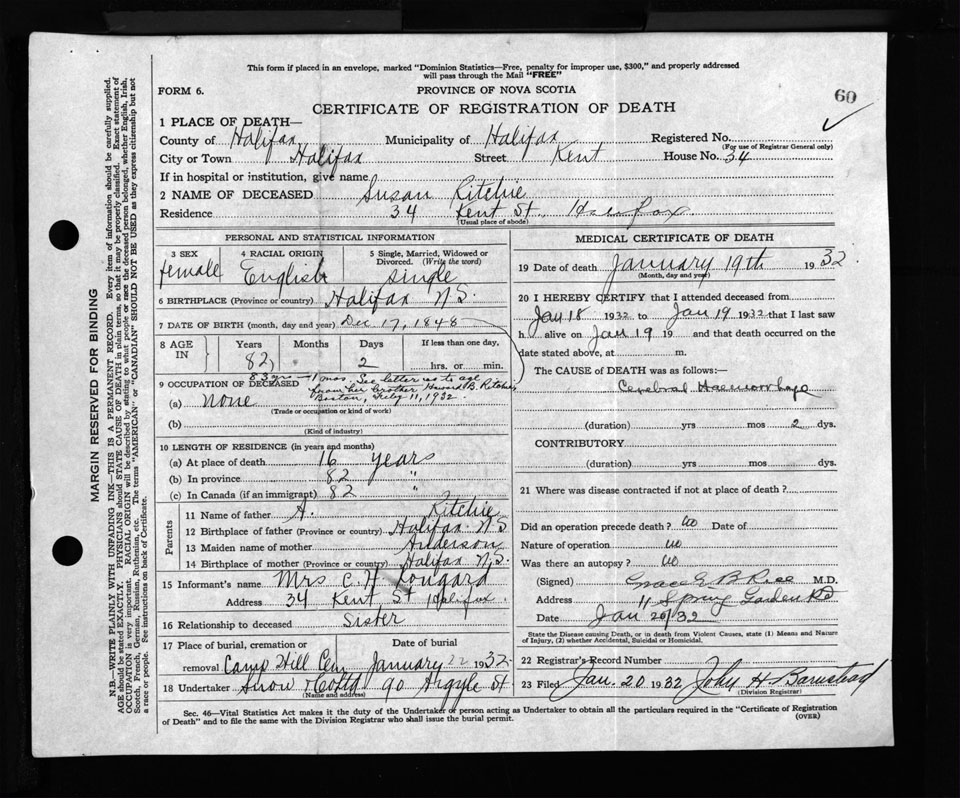 This form if placed in an envelope, marked "Dominion Statistics—Free, penalty for improper use, $300," and properly addressed
will pass through the Mail "FREE"
FORM 6.
PROVINCE OF NOVA SCOTIA
60
CERTIFICATE OF REGISTRATION OF DEATH
1 PLACE OF DEATH—
County of Halifax Municipality of Halifax Registered No.
(For use of Registrar General only)
City or Town Halifax Street Kent House No. 34
If in hospital or institution, give name
2 NAME OF DECEASED Susan Ritchie
Residence 34 Kent St. Halifax
(Usual place of abode)
PERSONAL AND STATISTICAL INFORMATION
3 SEX female
4 RACIAL ORIGIN English
5 Single, Married, Widowed or
Divorced. (Write the word)
single
6 BIRTHPLACE (Province or country) Halifax N.S.
7 DATE OF BIRTH (month, day and year) Dec 17, 1848
8 AGE IN
Years Months Days If less than one day,
82 2 hrs. or min.
83 yrs - 1 mos. See letter as to age
from her brother Howard B. Ritchie
Boston, July 11, 1932.
9 OCCUPATION OF DECEASED
(a) none
(Trade or occupation or kind of work)
(b)
(Kind of industry)
10 LENGTH OF RESIDENCE (in years and months)
(a) At place of death 16 years
(b) In province 82 "
(c) In Canada (if an immigrant) 82 "
Parents
11 Name of father A. Ritchie
12 Birthplace of father (Province or country) Halifax N.S
13 Maiden name of mother Anderson
14 Birthplace of mother (Province or country) Halifax N.S.
15 Informant's name Mrs C. H. Longard
Address 34 Kent St Halifax
16 Relationship to deceased Sister
17 Place of burial, cremation or
removal Camp Hill Cem
Date of burial
January 22 1932
18 Undertaker Snow & Co Ltd 90 Argyle St
(Name and address)
MEDICAL CERTIFICATE OF DEATH
19 Date of death January 19th 1932
(Month, day and year)
20 I HEREBY CERTIFY that I attended deceased from
Jan 18 1932 to Jan 19 1932 that I last saw
h alive on Jan 19 19 and that death occurred on the
date stated above, at m.
The CAUSE of DEATH was as follows:
Cerebral Haemorrhage
(duration) yrs mos 2 dys.
CONTRIBUTORY
(duration) yrs mos dys.
21 Where was disease contracted if not at place of death?
Did an operation precede death? No Date of
Nature of operation no
Was there an autopsy? no
(Signed) Grace E B Rice M.D.
Address 11 Spring Garden Rd
Date Jan 20/32
State the Disease causing Death, or in death from Violent Causes, state (1) Means and Nature
of Injury, (2) whether Accidental, Suicidal or Homicidal.
22 Registrar's Record Number
23 Filed Jan. 20 1932 John H Barnstead
(Division Registrar)
Sec. 46—Vital Statistics Act makes it the duty of the Undertaker or person acting as Undertaker to obtain all the particulars required in the "Certificate of Registration
of Death" and to file the same with the Division Registrar who shall issue the burial permit.
(OVER)
MARGIN RESERVED FOR BINDING
N.B.—WRITE PLAINLY WITH UNFADING INK—THIS IS A PERMANENT RECORD. Every item of information should be carefully supplied.
AGE should be stated EXACTLY. PHYSICIANS should STATE CAUSE OF DEATH in plain terms, so that it may be properly classified. Exact statement of
OCCUPATION is very important. RACIAL ORIGIN will be described by stating to what people or race the deceased person belonged, whether English, Irish,
Scotch, French, German, Russian, Ruthenian, etc. The terms "AMERICAN" or "CANADIAN" SHOULD NOT BE USED as they express citizenship but not
a race or people. See instructions on back of Certificate.